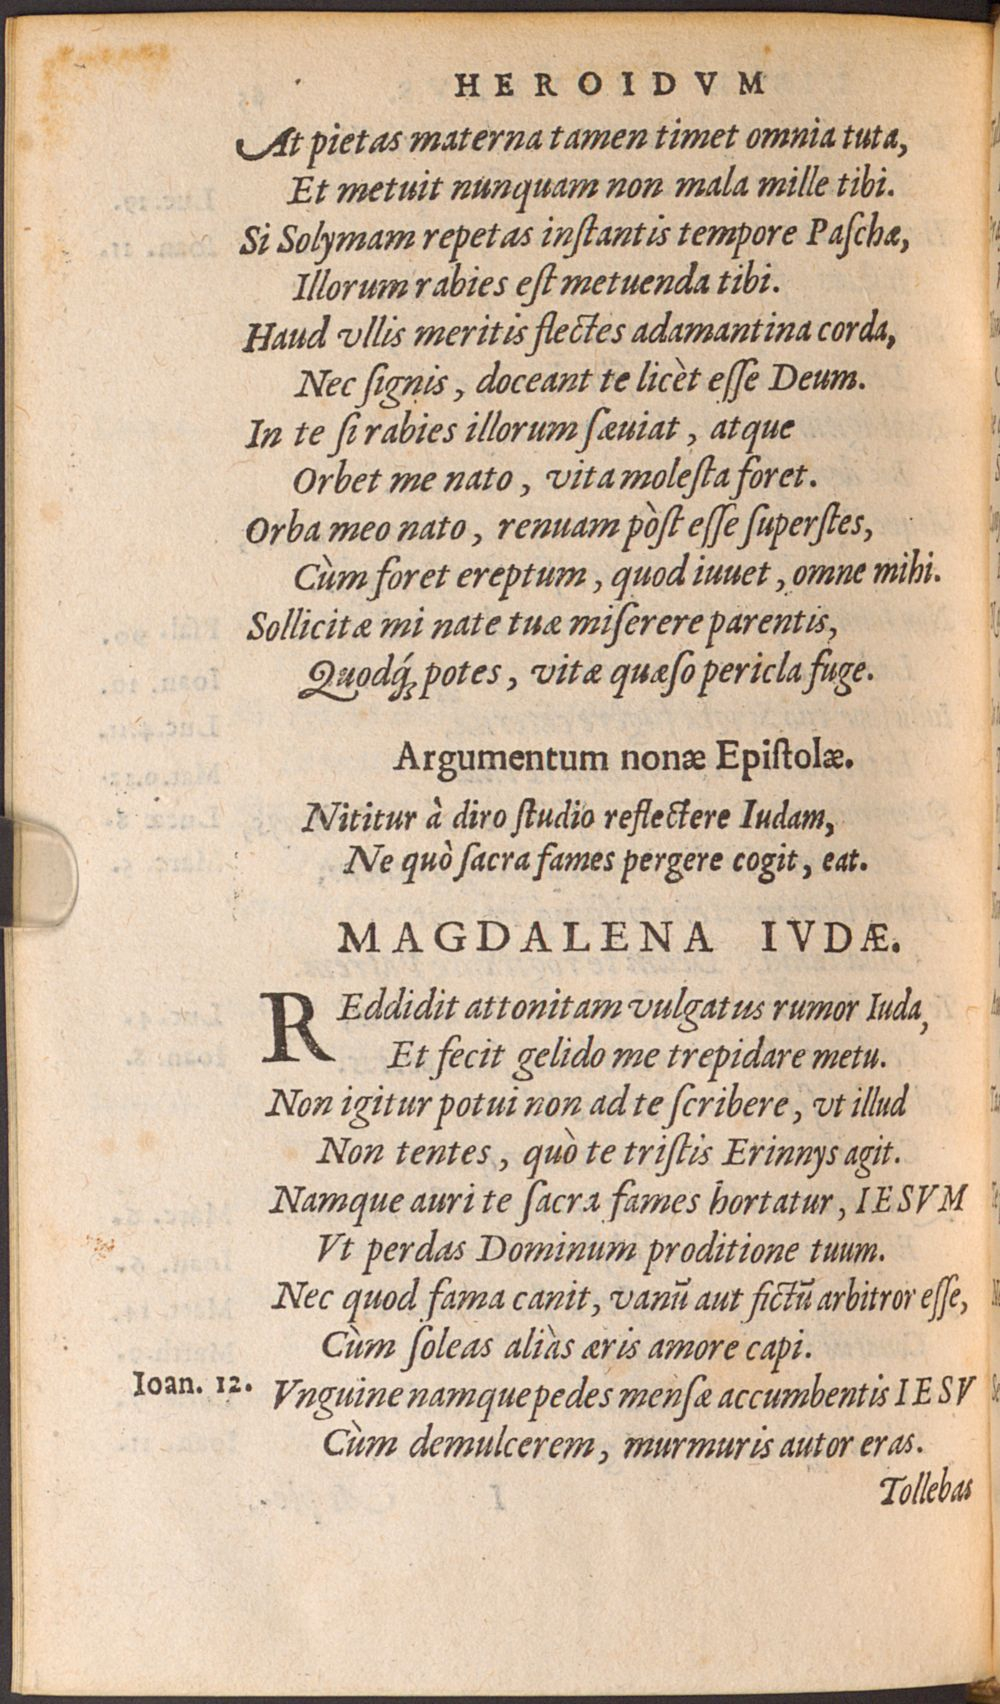 HEROIDVM
At pietas materna tamen timet omnia tuta,
Et metuit nunquam non mala mille tibi.
Si Solymam repetas inſtantis tempore Paſchæ,
Illorum rabies eſt metuenda tibi.
Haud vllis meritis flectes adamantina corda,
Nec ſignis, doceant te licèt eſſe Deum.
In te ſi rabies illorum ſæuiat, atque
Orbet me nato, vita moleſta foret.
Orba meo nato, renuam pòſt eſſe ſuperſtes,
Cùm foret ereptum, quod iuuet, omne mihi.
Sollicitæ mi nate tuæ miſerere parentis,
Quodq́; potes, vitæ quæſo pericla fuge.
Argumentum nonæ Epiſtolæ.
Nititur à diro ſtudio reflectere Iudam,
Ne quò ſacra fames pergere cogit, eat.
MAGDALENA IVDÆ.
REddidit attonitam vulgatus rumor Iuda,
Et fecit gelido me trepidare metu.
Non igitur potui non ad te ſcribere, vt illud
Non tentes, quò te triſtis Erinnys agit.
Namque auri te ſacra fames hortatur, IESVM
Vt perdas Dominum proditione tuum.
Nec quod fama canit, vanū aut fictū arbitror eſſe,
Cùm ſoleas aliàs æris amore capi.
Ioan. 12. Vnguine namque pedes menſæ accumbentis IESV
Cùm demulcerem, murmuris autor eras.
Tollebas